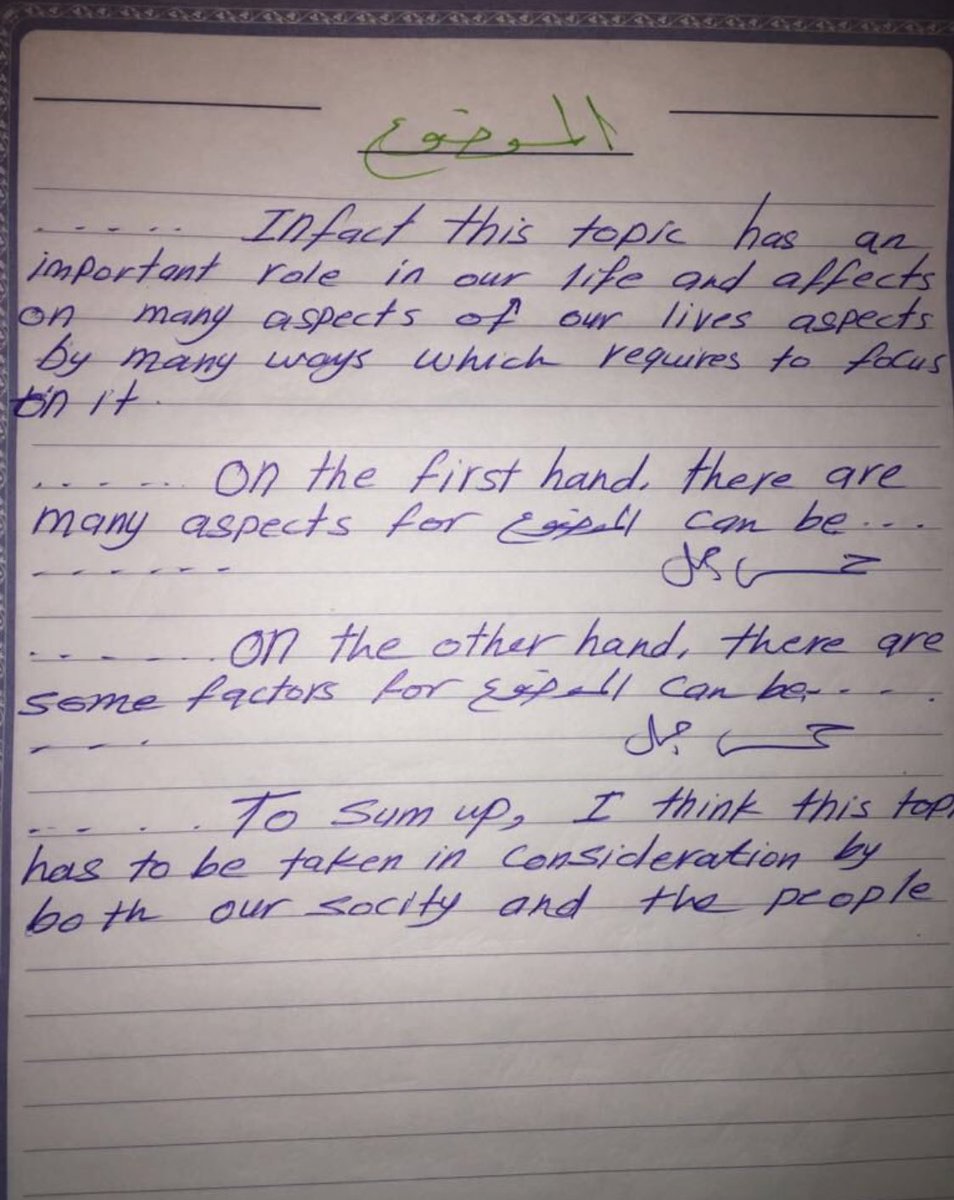 الموضوع
..... Infact this topic has an
important role in our life and affects
on many aspects of our lives aspects
by many ways which requires to focus
on it.
...... On the first hand, there are
many aspects for الموضوع can be ...
------ خمس جمل
...... On the other hand, there are
some factors for الموضوع can be ....
--- خمس جمل
..... To sum up, I think this topi
has to be taken in consideration by
both our socity and the people